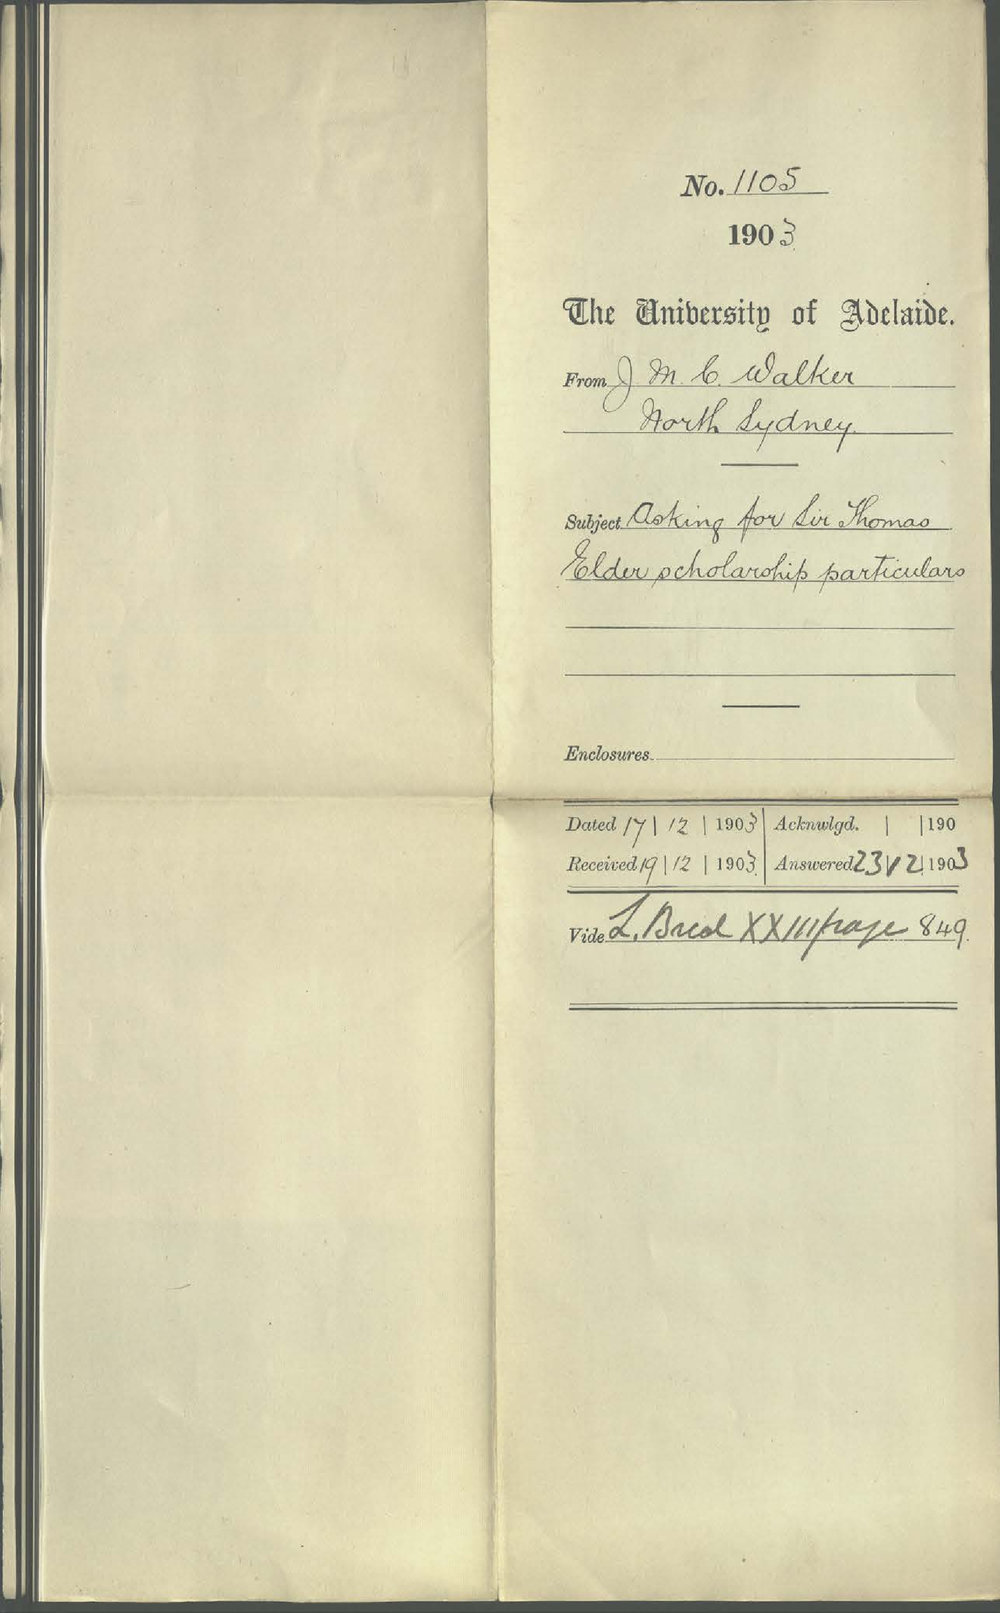 No. 1105
1903
The University of Adelaide.
From J. M. C. Walker
North Sydney.
Subject Asking for Sir Thomas
Elder scholarship particulars
Enclosures
Dated 17 | 12 | 1903 Acknwlgd. | | 190
Received 19 | 12 | 1903 Answered 23 | 12 | 1903
Vide L. XXIII page 849